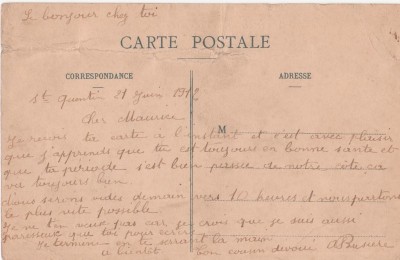 Le bonjour chez toi
CARTE POSTALE
CORRESPONDANCE
ADRESSE
St Quentin 21 Juin 1912
Cher Maurice
M
Je reçois ta carte à l'instant et c'est avec plaisir
que j'apprends que tu est toujours en bonne santé et
que ta période s'est bien passée de notre côté ça
va toujours bien
Nous serons vides demain vers 10 heures et nous partons
le plus vite possible
Je ne t'en veux pas car je crois que je suis aussi
paresseux que toi pour écrire
Je termine en te serrant la main
à bientôt Ton cousin dévoué